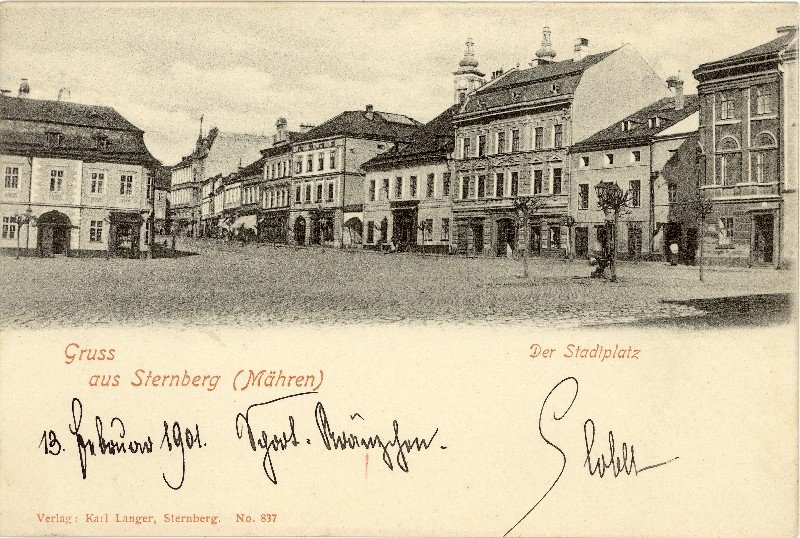 Gruss
aus Sternberg (Mähren)
Der Stadtplatz
13. Februar 1901.
Kränzchen.
Verlag: Karl Langer, Sternberg. No. 837